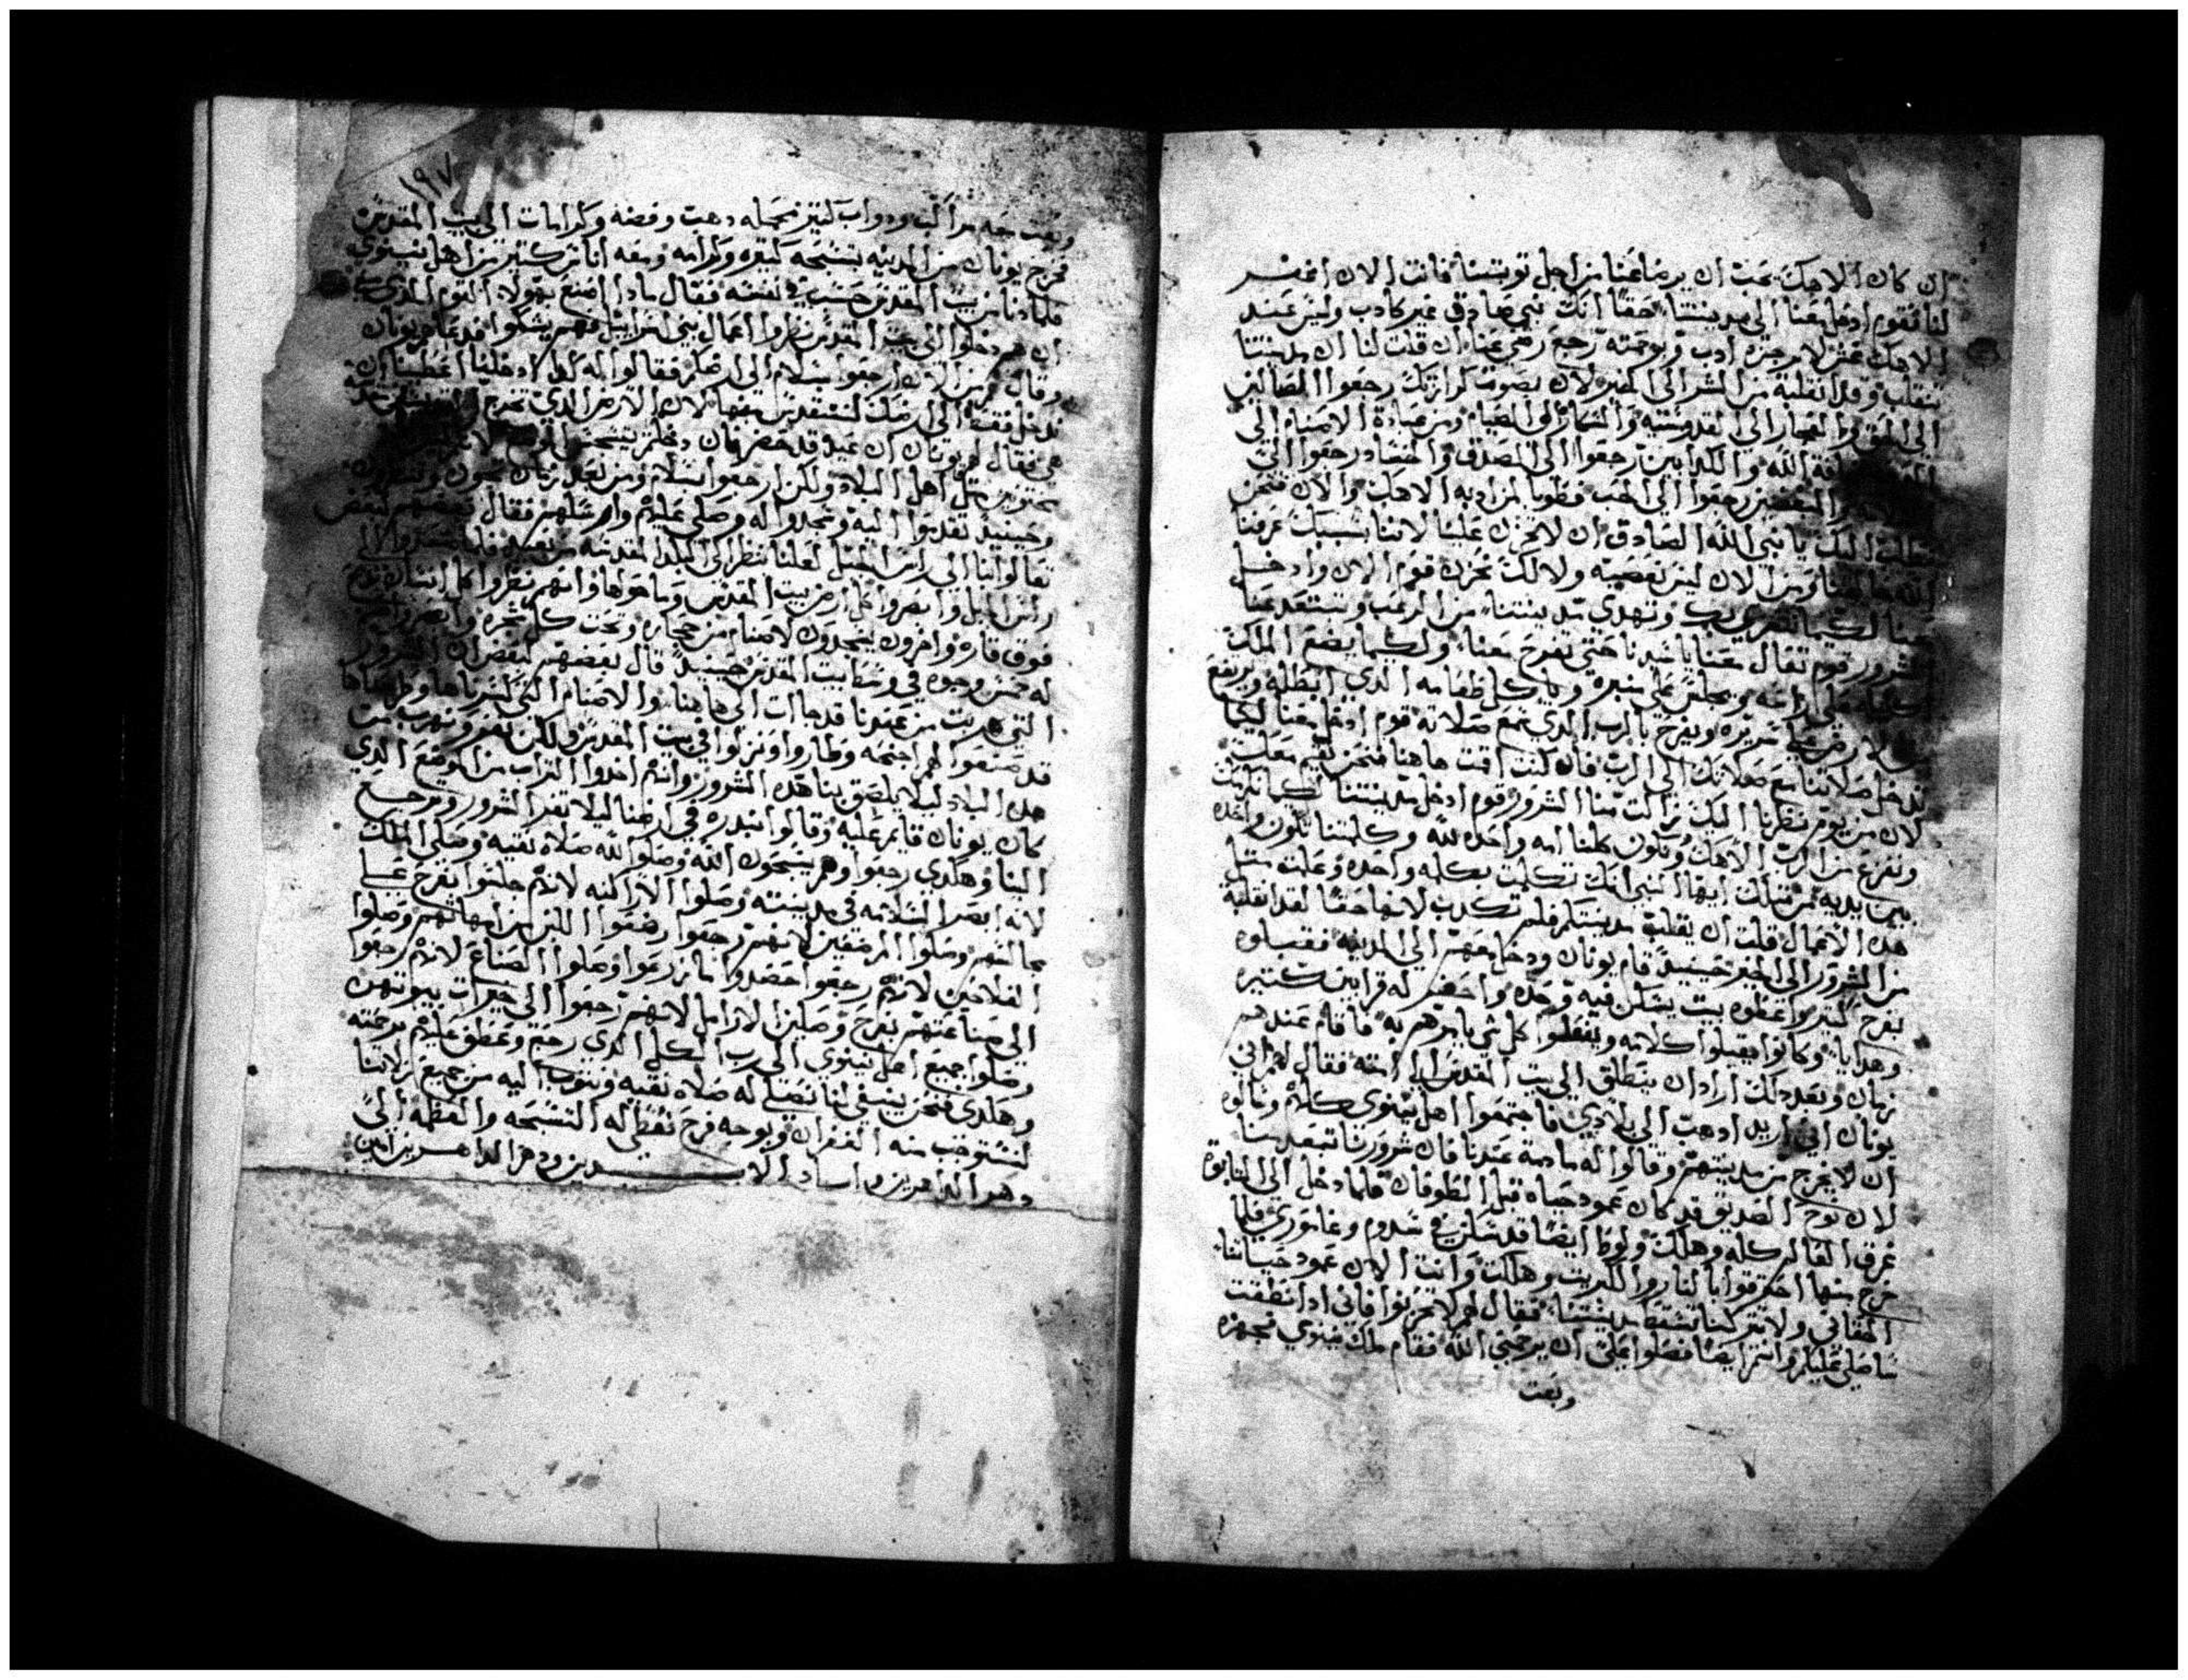 ان كان الاهك يحب ان يرضا عنا من اجل توبتنا فانت الان اغفر
لنا فقوم ادخل معنا الى مدينتنا حقا انك نبي صادق غير كادب وليس عند
الاهك غش لا مرجزه ادب وبوحمته رجع رضي عنا ان قلت لنا ان مدينتنا
تنقلب وقد انقلبة من الشر الى الخير لان بصوت كرازتك رجعوا الضالين
الى الحق والفجار الى القدوسيه والسكارى الى الصيام ومن عبادة الاصنام الى
الله والكدابين رجعوا الى الصدق والحقاد رجعوا الى
والمبغضين رجعوا الى الحب فطوبا لمن اد به الاهك والان فنحن
نطلب اليك يا نبي الله الصادق ان لا تحزن علينا لاننا بسببك عرفنا
الله خالقنا ومن الان ليس نغضبه ولا لك نحزن قوم الان وادخل
معنا لكيما نتعزى بك وتهدى مدينتنا من الرعب وتبتعد عنا
الشرور قوم تعال معنا يا سيدنا حتى تفرح معنا ولكيما يضع الملك
تاجه على راسه ويجلس على منبره وياكل طعامه الدي ابطله ويرتفع
من الارض على سريره ويفرح بالرب الدي سمع صلاته قوم ادخل معنا لكيما
تدخل صلاتنا مع صلاتك الى الرب فان كنت اقت هاهنا فنحن نقيم معك
لان من يوم نظرنا اليك زالت منا الشرور قوم ادخل مدينتنا لكيما نكرمك
ونفزع من الرب الاهك وتكون كلنا امه واحده لله وكلمتنا تكون واحده
بين يديه من قبلك ايها النبي انك تكلمت بكلمه واحده وعملت مثل
هده الاعمال قلت ان يقلب مدينتكم فلم تكدب لانها حقا لقد انقلبة
من الشرور الى الخير حينيدا قام يونان ودخل معهم الى المدينه فقبلوه
بفرح كتير واعطوه بيت يسكن فيه وحده واحضر له قرابين كتيره
وهدايا وكانوا يقبلوا كلامه ويفعلوا كل شي يامرهم به فاقام عندهم
زمان وبعد دلك اراد ان ينطلق الى بيت المقدس فقال لهم اني
يونان اني اريد ادهب الى بلادي فاجتمعوا اهل نينوي كلهم وسالوه
ان لا يخرج من مدينتهم وقالوا له ما دمة عندنا فان شرورنا تبعد منا
لان نوح الصديق قد كان عمود حياه قبل الطوفان فلما دخل الى التابوة
غرق العالم كله وهلك ولوط ايضا قد سكن في سدوم وغامورى فلما
خرج منها احترقوا بالنار والكبريت وهلكت وانت الان عمود حياتنا
الحقاني ولا تتركنا تسقط مدينتنا فقال لهم لا تحزنوا فاني ادا انطلقت
ساصلي عليكم وانتم ايضا فصلوا على ان يرحمني الله فقام ملك نينوي فجهزه
وبعت
١٩٧
وبعت معه مراكب ودواب كتير محمله دهب وفضه وكرامات الى بيت المقدس
فخرج يونان من المدينه بتسبحه كتيره وكرامه ومعه اناس كتير من اهل نينوى
فلما دنا من بيت المقدس حسب في نفسه فقال مادا اصنع بهولاء القوم الدي معي
ان هم دخلوا الى بيت المقدس نظروا اعمال بني اسراييل فهم يشكوا فدعاهم يونان
وقال لهم من الان ارجعوا بسلام الى ارضكم فقالوا له كلهم لا دخلنا اعطيتنا ان
ندخل فقط الى ارضك لنتقدس منها لان الارض الدي تخرج
هي فقال لهم يونان ان عيد قد حضر زمان دخلهم
مختونين مثل اهل البلاد ولكن ارجعوا بسلام ومن بعد زمان تجون وتنظرون
وحينيد تقدموا اليه وسجدوا له وصلى عليهم وارسلهم فقال بعضهم لبعض
تعالوا بنا الى راس الجبل لعلنا ننظر الى البلد المقدسه من بعيد فلما صعدوا الى
راس الجبل وابصروا كل ارض بيت المقدس وما هو لها وانهم نظروا كل انسان يدبح
فوق قاره واخرون يسجدون لاصنام من حجاره وتحت كل شجره
له فحس وجوه في وسط بيت المقدس حينيدا قال بعضهم لبعض ان الشرور
التي هربت من عندنا قد جاات الى هاهنا والاصنام التي كسرناها وطرحناها
قد صنعوا لهم اجنحه وطاروا ونزلوا في بيت المقدس ولكن نفر ونهرب من
هده البلاد ليلا يلصق بنا هده الشرور وانهم اخدوا التراب من الموضع الدي
كان يونان قايم عليه وقالوا نبدره في ارضنا ليلا تفزا الشرور وترجع
الينا وهكدى رجعوا وهم يسبحون الله وصلوا لله صلاه نقيه وصلى الملك
لانه ابصر السلامه في مدينته وصلوا الاراكنه لانهم جلسوا بفرح على
مجالسهم وصلوا المرضعين لانهم رجعوا رضعوا اللبن من امهاتهم وصلوا
الفلاحين لانهم رجعوا حصدوا ما زرعوا وصلوا الصناع لانهم رجعوا
الى صناعتهم بفرح وصلين الارامل لانهم رجعوا الى خيرات بيوتهن
وصلوا جميع اهل نينوي الى رب الكل الدى رحمهم وعطف عليهم برحمته
وهكدى فنحن ينبغي لنا نصلي له صلاه نقيه ونتوب اليه من جميع زلاتنا
لنستوجب منه الغفران وبوجه فرح نعطي له التسبحه والعظمه الى
دهر الداهرين واباد الابـــــدين ودهر الداهرين امين